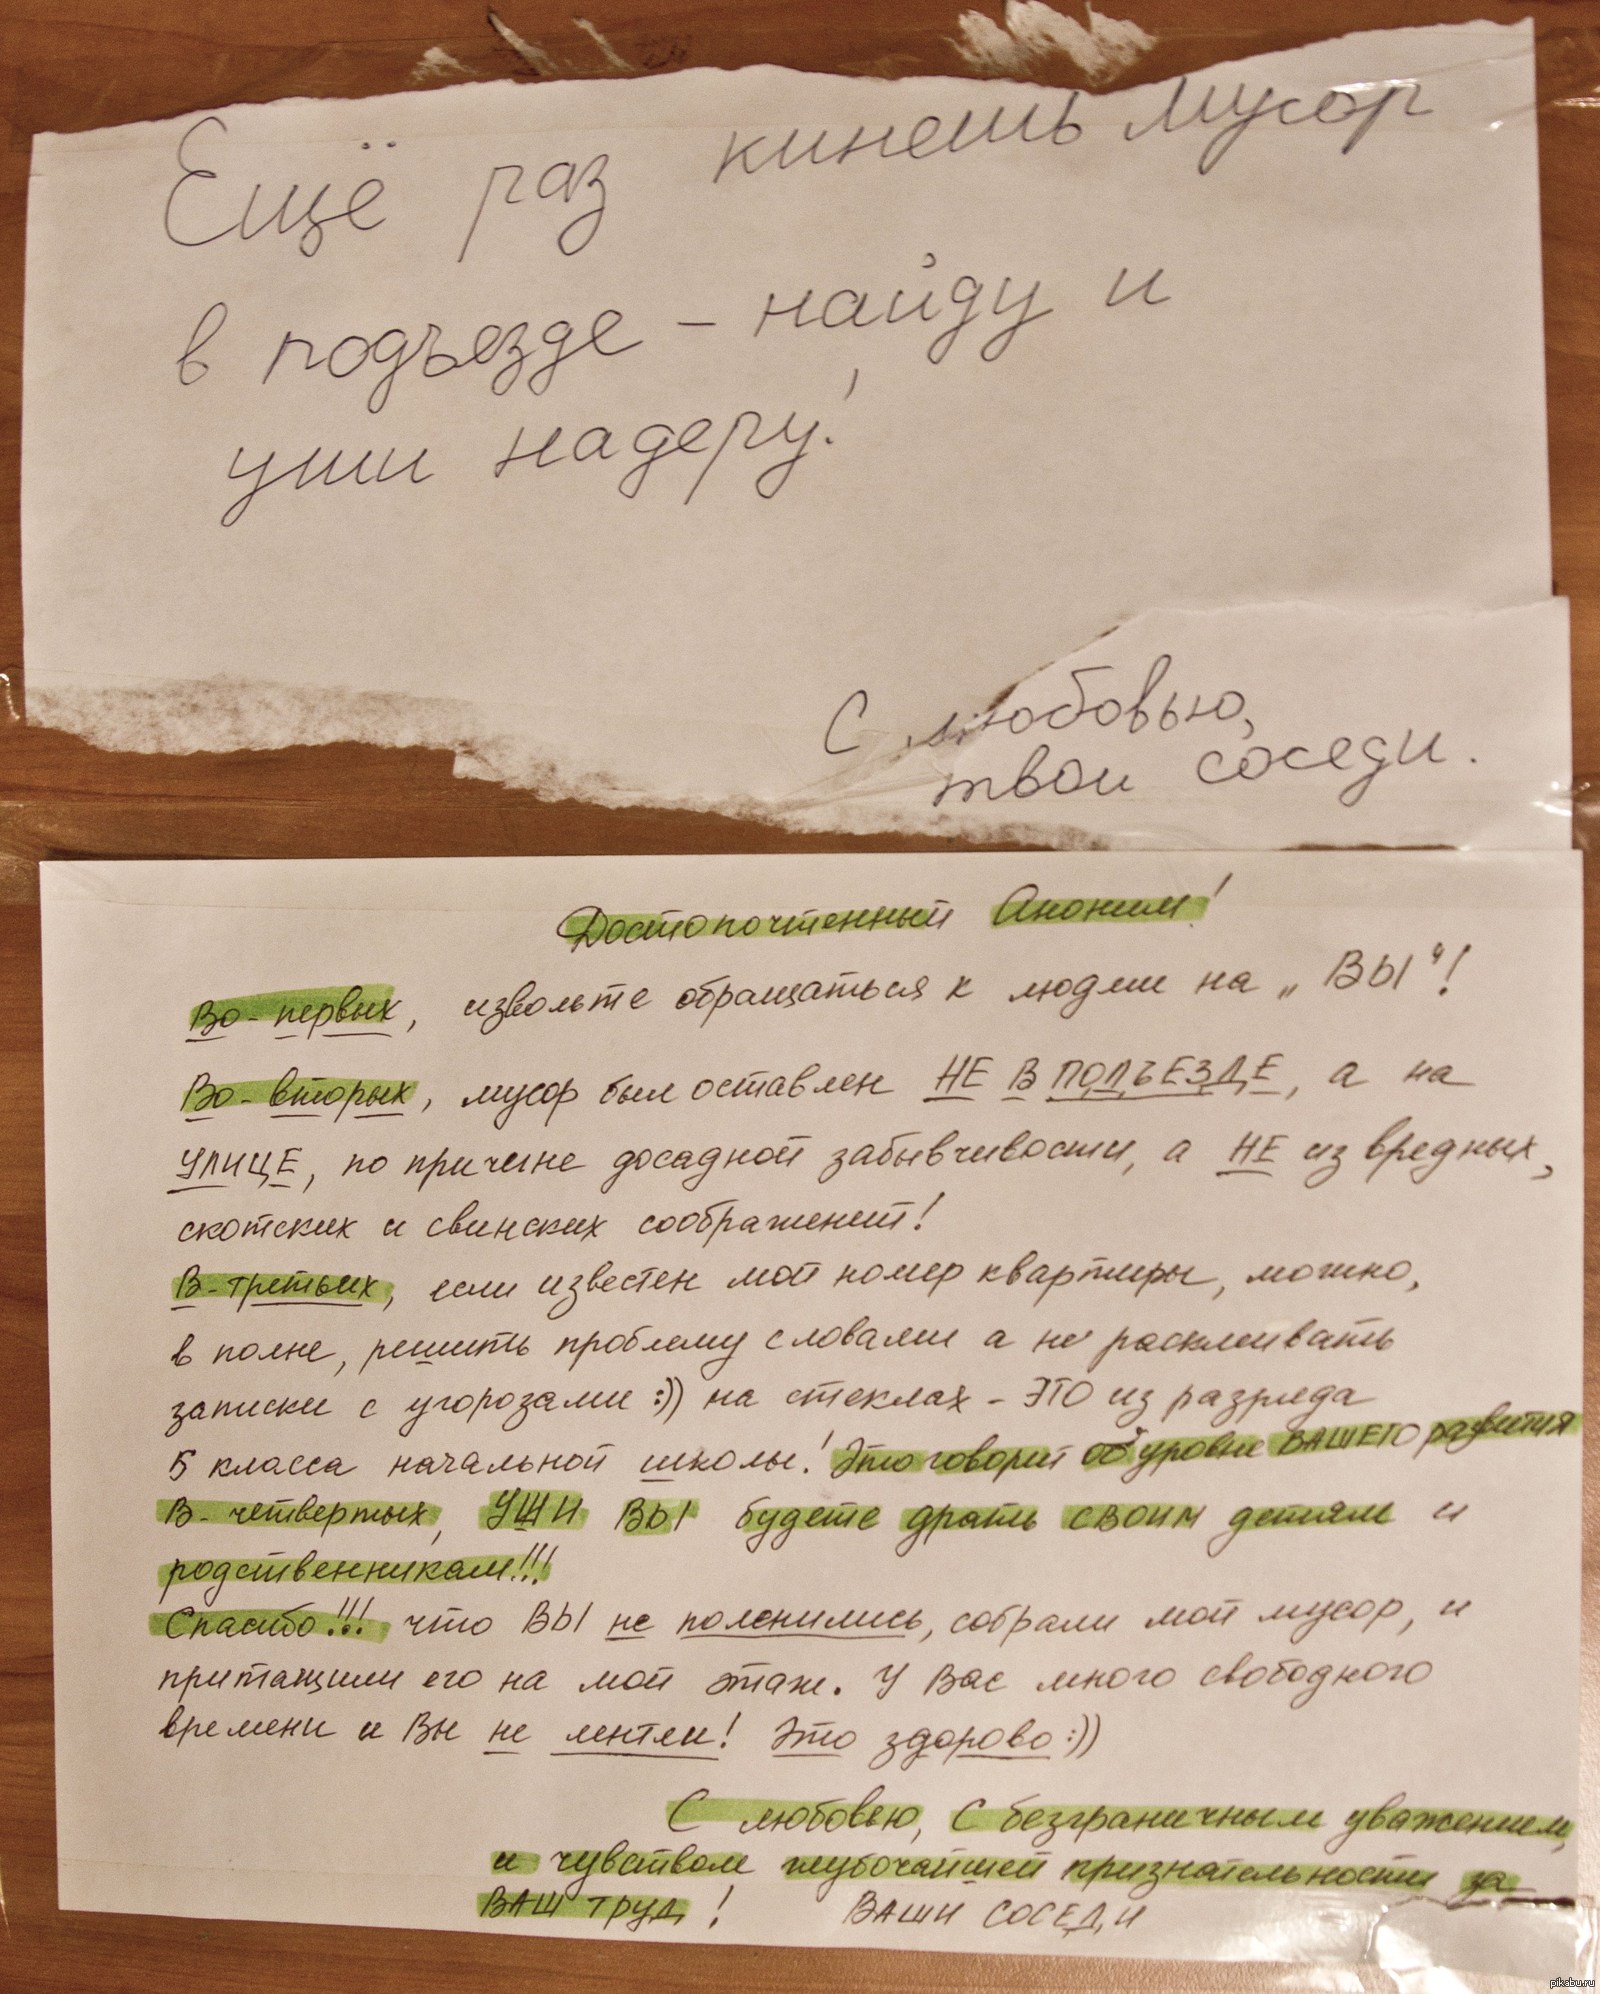 Ещё раз кинешь мусор
в подъезде – найду и
уши надеру!
С любовью,
твои соседи.
Достопочтенный Аноним!
Во-первых, извольте обращаться к людям на „ВЫ“!
Во-вторых, мусор был оставлен НЕ В ПОДЪЕЗДЕ, а на
УЛИЦЕ, по причине досадной забывчивости, а НЕ из вредных,
скотских и свинских соображений!
В-третьих, если известен мой номер квартиры, можно,
в полне, решить проблему словами а не расклеивать
записки с угорозами :)) на стеклах – ЭТО из разряда
5 класса начальной школы! Это говорит об уровне ВАШЕГО развития
В-четвертых, УШИ ВЫ будете драть своим детям и
родственникам!!!
Спасибо!!! что ВЫ не поленились, собрали мой мусор, и
притащили его на мой этаж. У Вас много свободного
времени и Вы не лентяи! Это здорово :))
С любовью, С безграничным уважением,
и чувством глубочайшей признательности за
ВАШ ТРУД! ВАШИ СОСЕДИ
pikabu.ru